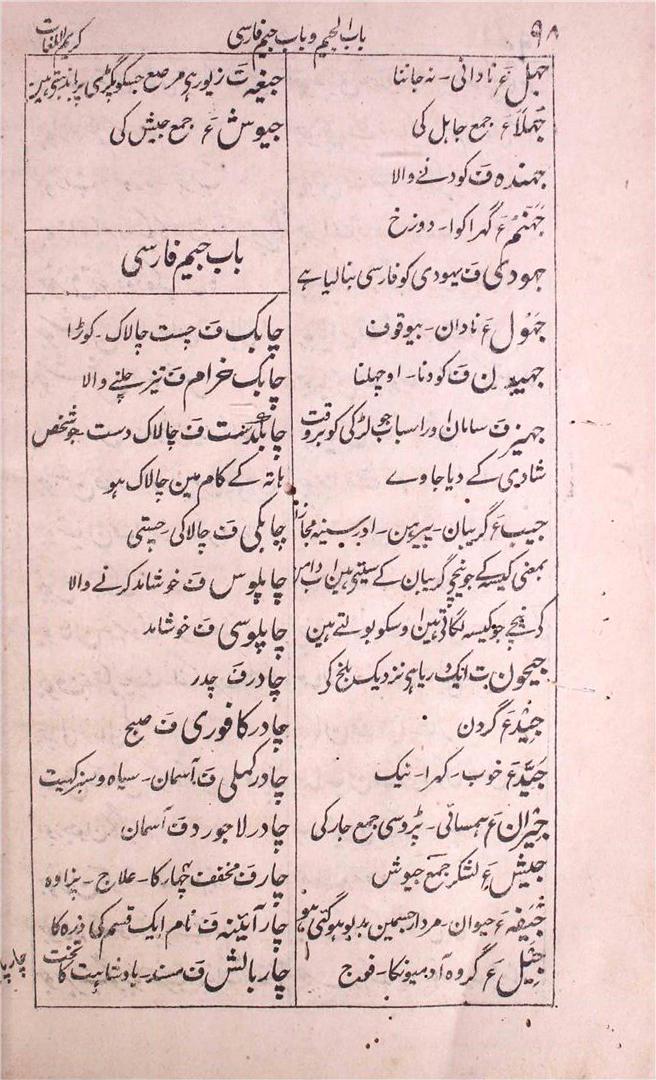 ۹۸
باب الجیم و باب جیم فارسی
کریم اللغات
جہل ع نادانی۔ نہ جاننا
جہلاء ع جمع جاہل کی
جہندہ ف کودنے والا
جہنم ع گہرا کوا۔ دوزخ
جہودی ف یہودی کو فارسی بنا لیا ہے
جہول ع نادان۔ بیوقوف
جہیدن ف کودنا۔ اوچھلنا
جہیز ف سامان اور اسباب جو لڑکی کو بروقت
شادی کے دیا جاوے
جیب ع گریبان۔ پیرہن۔ اور سینہ مجازاً
بمعنی کیسہ کے جو نیچے گریبان کے سیتے ہین اب دامن
کے نیچے جو کیسہ لگاتے ہین اوسکو بولتے ہین
جیحون ت ایک دریا ہی نزدیک بلخ کی
جید ع گردن
جید ع خوب۔ کہرا۔ نیک
جیران ع ہمسائی۔ پڑوسی جمع جار کی
جیش ع لشکر جمع جیوش
جیفہ ع حیوان۔ مردار جسمین بدبو ہو گئی ہو
جیل ع گروہ آدمیونکا۔ فوج
جیغہ ت زیور ہی مرصع جسکو پگڑی پر باندہتے ہین
جیوش ع جمع جیش کی
باب جیم فارسی
چابک ف چست چالاک۔ کوڑا
چابک خرام ف تیز چلنے والا
چابکدست ف چالاک دست۔ جو شخص
ہاتہ کے کام مین چالاک ہو
چابکی ف چالاکی۔ چستی
چاپلوس ف خوشامد کرنے والا
چاپلوسی ف خوشامد
چادر ف چدر
چادر کافوری ف صبح
چادر کملی ف آسمان۔ سیاہ و سبز کہیت
چادر لاجورد ف آسمان
چار ف مخفف چہار کا۔ علاج۔ پزاوہ
چار آئینہ ف نام ایک قسم کی ذرہ کا
چار بالش ف مسند۔ بادشاہت کا تخت